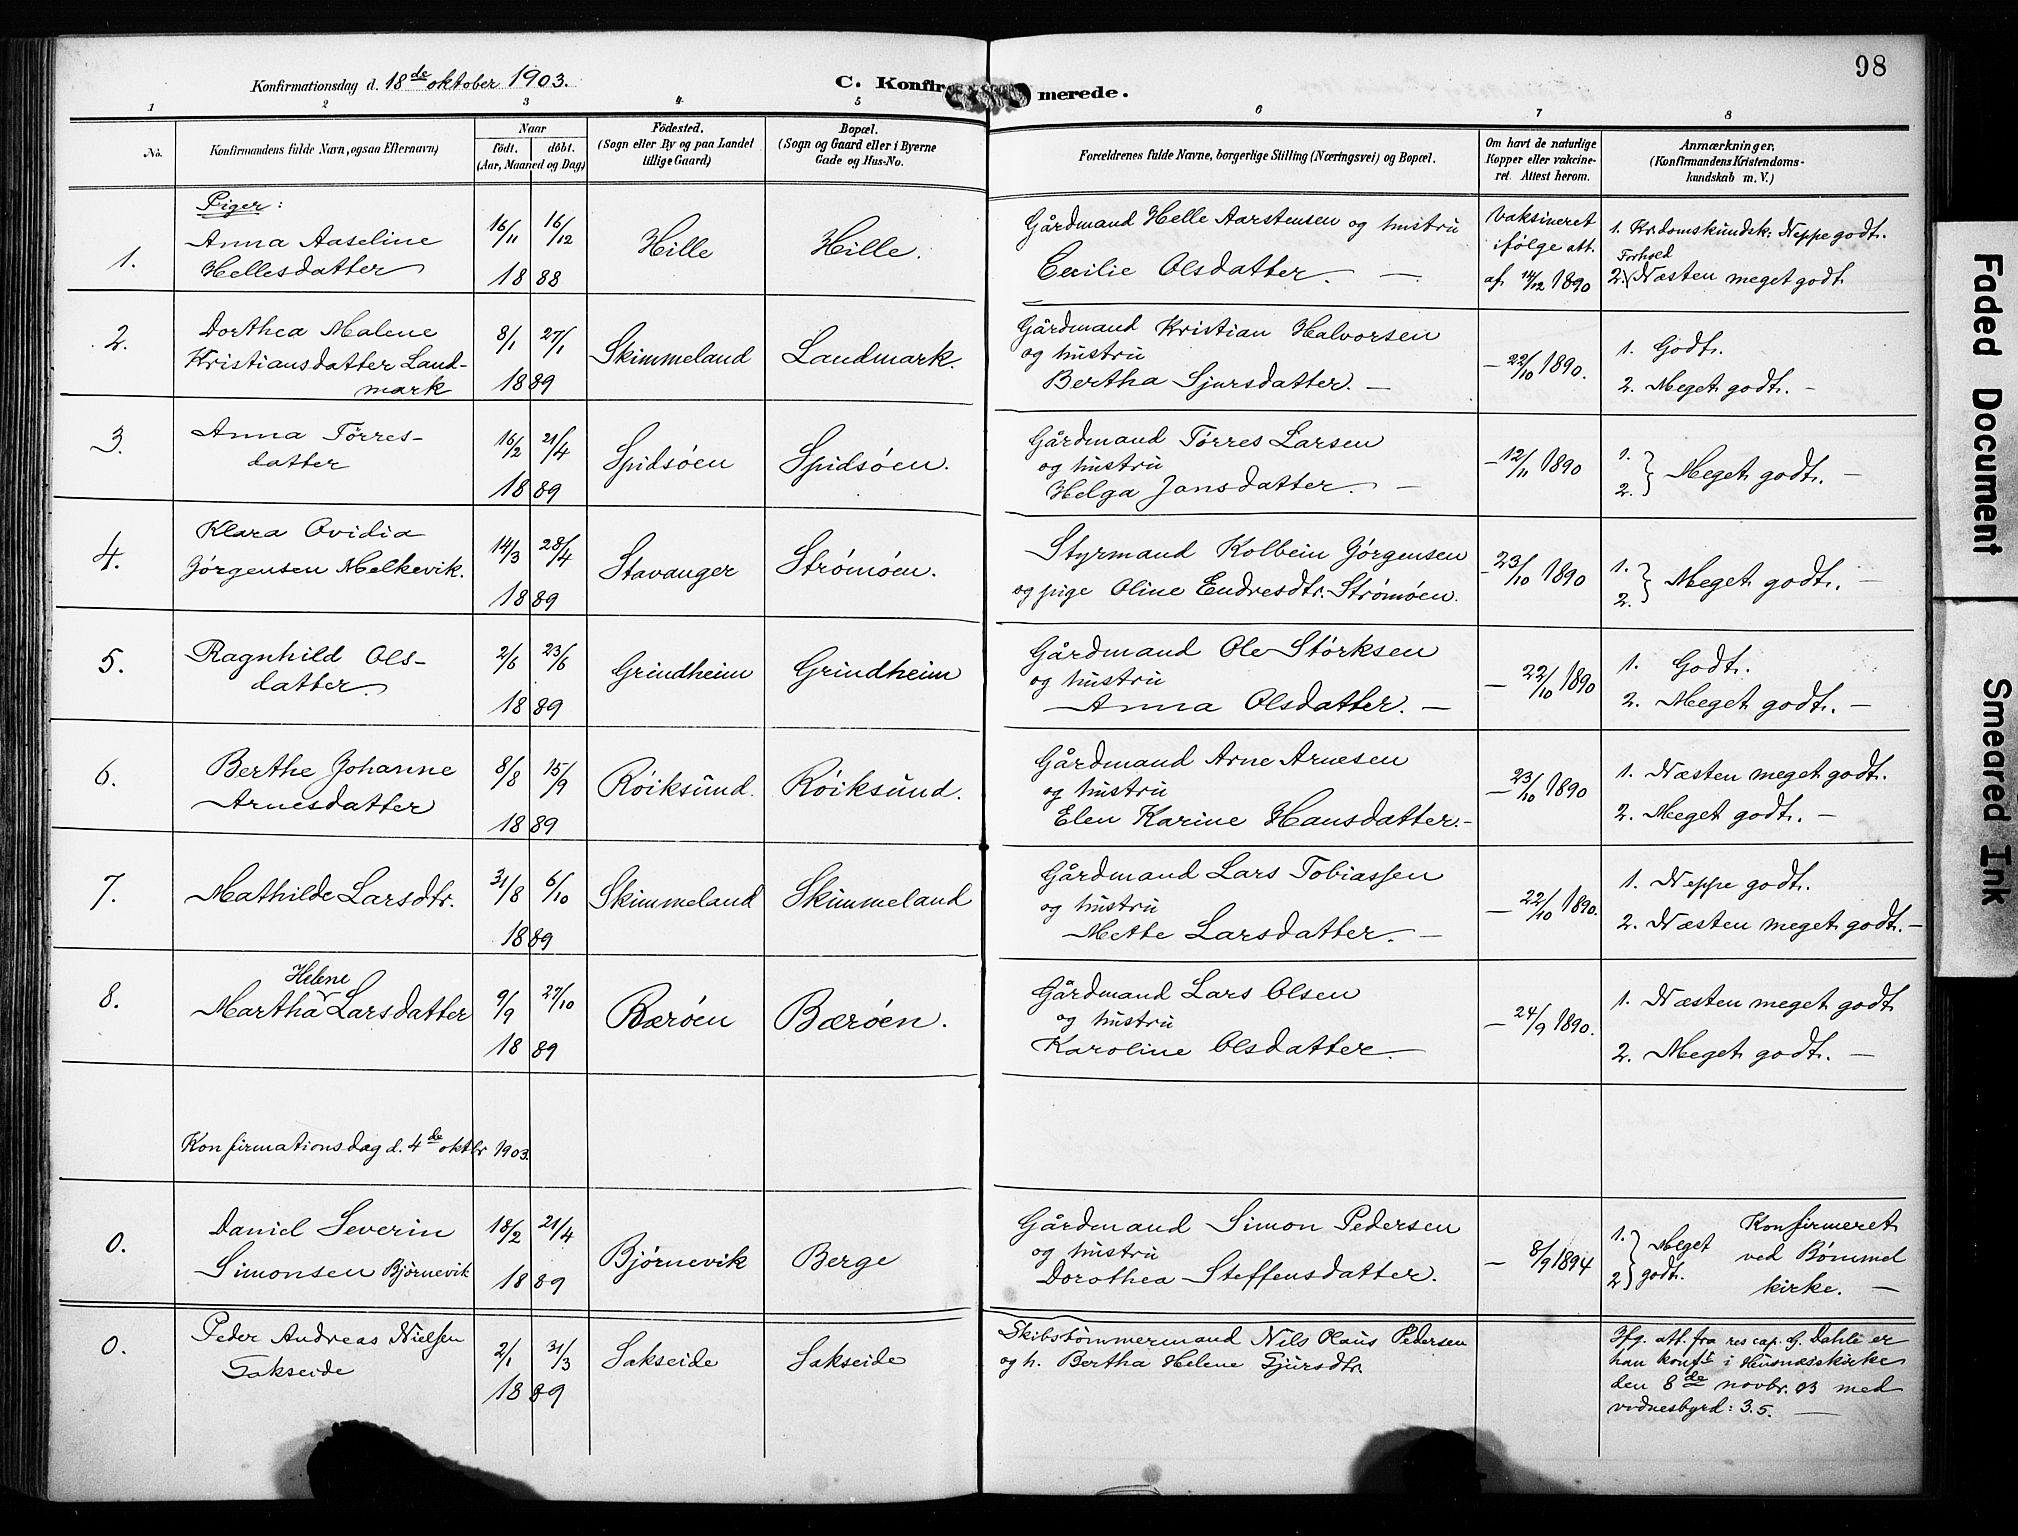 98
Konfirmationsdag d. 18de oktober 1903.
C. Konfirmerede.
1 2 3 4 5 6 7 8
No.
Konfirmandens fulde Navn, ogsaa Efternavn)
Naar
födt. döbt.
(Aar, Maaned og Dag)
Födested.
(Sogn eller By og paa Landet
tillige Gaard)
Bopæl.
(Sogn og Gaard eller i Byerne
Gade og Hus-No.
Forældrenes fulde Navne, borgerlige Stilling (Næringsvei) og Bopæl.
Om havt de naturlige
Kopper eller vakcine-
ret. Attest herom.
Anmærkninger,
(Konfirmandens Kristendoms-
kundskab m. V.)
Piger:
1. Anna Aaseline
Hellesdatter
16/11 16/12
1888
Hille
Hille.
Gårdmand Helle Aarstensen og hustru
Cecilie Olsdatter. —
Vaksineret
ifølge att.
af 14/12 1890
1. Kr.domskundsk: Neppe godt.
Forhold
2. Næsten meget godt
2. Dorthea Malene
Kristiansdatter Land-
mark
8/1 27/1
1889
Skimmeland
Landmark.
Gårdmand Kristian Halvorsen
og hustru
Bertha Sjursdatter. —
— 22/10 1890.
1. Godt.
2. Meget godt. —
3. Anna Tørres-
datter
16/2 21/4
1889
Spidsøen
Spidsøen.
Gårdmand Tørres Larsen
og hustru
Helga Jansdatter. —
— 12/11 1890
1.
2. } Meget godt. —
4. Klara Ovidia
Jørgensen Melkevik.
14/3 28/4
1889
Stavanger
Strømøen.
Styrmand Kolbein Jørgensen
og pige Oline Endresdtr. Strømøen.
— 23/10 1890
1.
2. } Meget godt. —
5. Ragnhild Ols-
datter.
2/6 23/6
1889
Grindheim
Grindheim
Gårdmand Ole Størksen
og hustru
Anna Olsdatter. —
— 22/10 1890
1. Godt.
2. Meget godt. —
6. Berthe Johanne
Arnesdatter
8/8 15/9
1889
Røiksund.
Røiksund.
Gårdmand Arne Arnesen
og hustru
Elen Karine Hansdatter. —
— 23/10 1890
1. Næsten meget godt.
2. Meget godt. —
7. Mathilde Larsdtr.
31/8 6/10
1889
Skimmeland
Skimmeland
Gårdmand Lars Tobiassen
og hustru
Mette Larsdatter. —
— 22/10 1890.
1. Neppe godt.
2. Næsten meget godt. —
8. Martha Helene Larsdatter
9/9 27/10
1889
Bærøen
Bærøen.
Gårdmand Lars Olsen
og hustru
Karoline Olsdatter. —
— 24/9 1890.
1. Næsten meget godt
2. Meget godt. —
Konfirmationsdag d. 4de oktbr 1903.
0. Daniel Severin
Simonsen Bjørnevik
18/2 21/4
1889
Bjørnevik
Berge
Gårdmand Simon Pedersen
og hustru
Dorothea Steffensdatter.
— 8/9 1894
1.
2. } Meget
godt.
Konfirmeret
ved Bømmel
kirke. —
0. Peder Andreas Nielsen
Sakseide
2/1 31/3
1889
Sakseide
Sakseide
Skibstømmermand Nils Olaus Pedersen
og h. Bertha Helene Sjursdtr.
Ifg. att. fra res cap. G. Dahle er
han konft i Husnæs kirke
den 8de novbr. 03 med
vidnesbyrd: 3.5. —
Faded Document
Smeared Ink